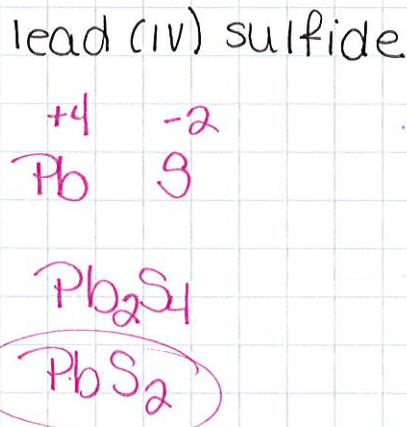 lead (IV) sulfide
+4 -2
Pb S
Pb₂S₄
PbS₂